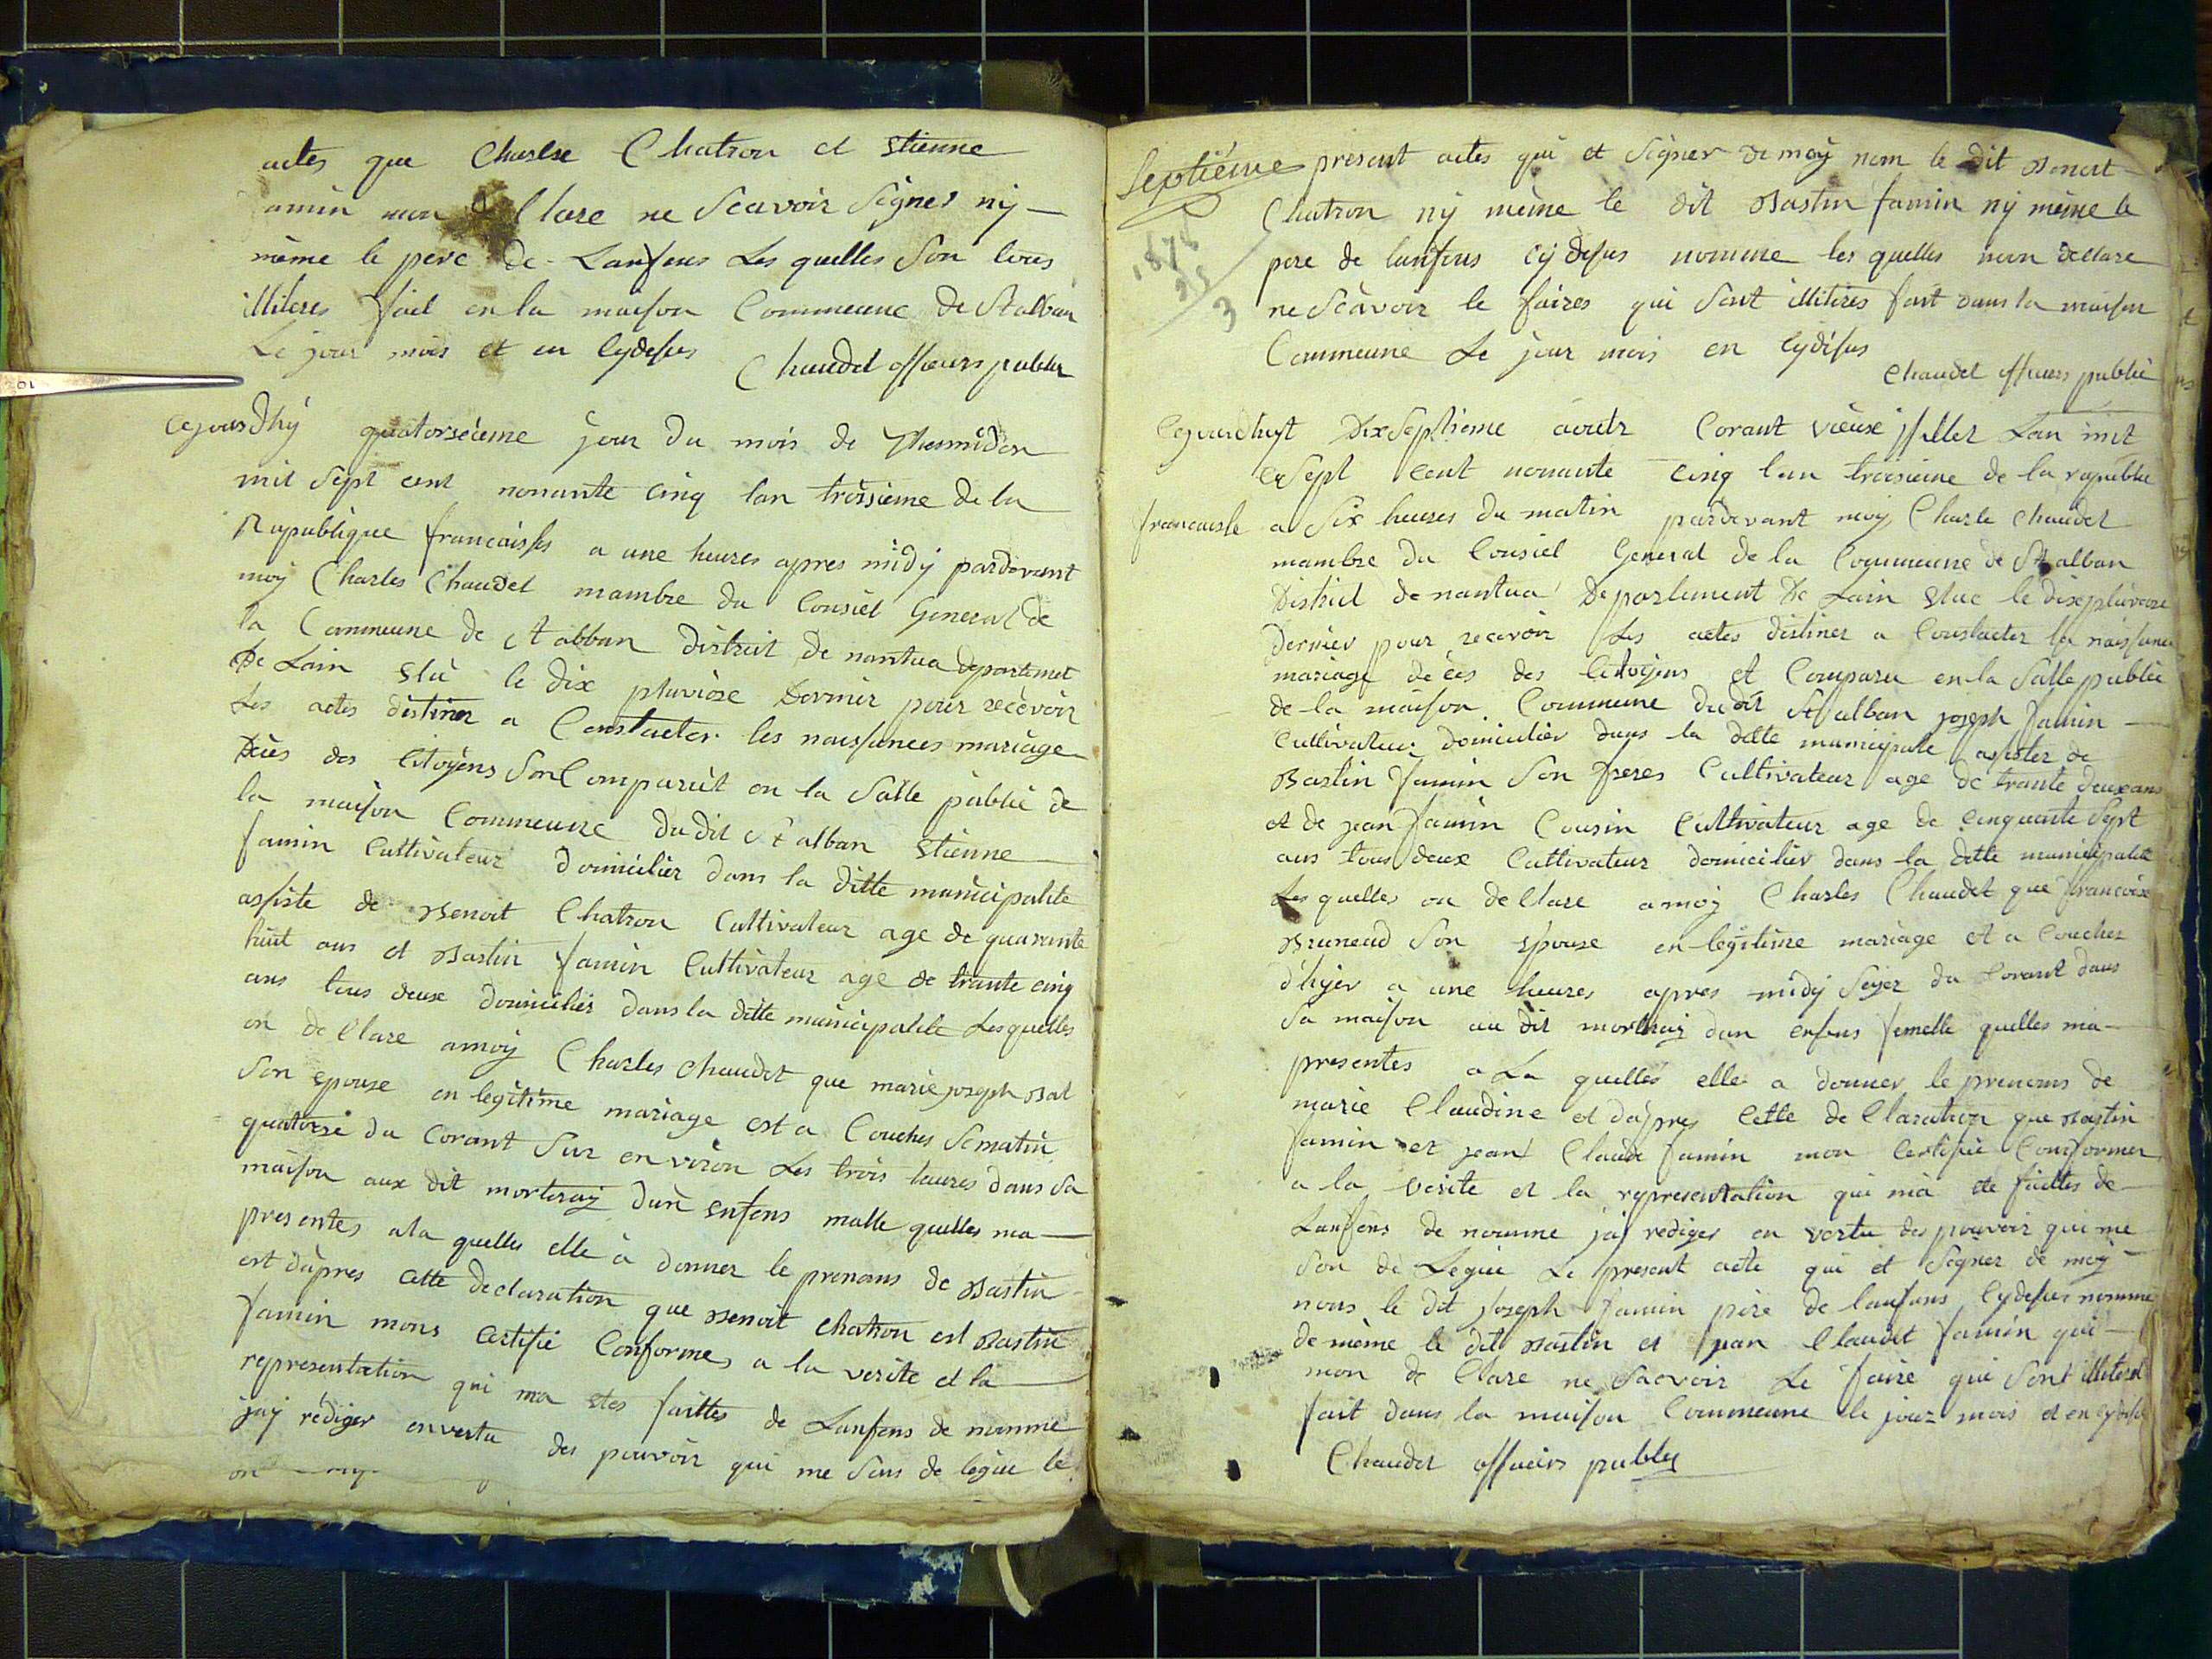 actes que Charlse Chatron et Stienne
amin mon de Clare ne Scavoir Signer ny
même le pere de Lanfens Les quelles Son tous
illiteres fait en la maison Commeune de St alban
Le jour mois et en cydesus
Chaudet officiers public
cejourdhÿ quatorsèieme jour du mois de Thermidor
mil Sept cent nonante cinq lan troisieme de la
Rapublique francaises a une heures apres midÿ pardevant
moÿ Charles Chaudet mambre du Consiel General de
la Commeune de St alban district de nantua departemet
De Lain Slù le dix pluviose Dernier pour recevoir
Les actes destiner a Constacter les naissances mariage
Dèes des Citoÿens Son Comparut en la Salle publie de
la maison Commeune dudit St alban Stienne
famin Cultivateur domicilier dans la ditte municipalite
assiste de Benoit Chatron Cultivateur age de quarante
huit ans et Bastin famin Cultivateur age de trante cinq
ans tous deux domicilier dans la ditte municipalite Lesquelles
on de Clare amoy Charles Chaudet que marie joseph Bal
Son epouse en legitime mariage est a Couches Sematin
quatorse du Corant Sur environ Les trois heures dans Sa
maison aux dit morteray dun enfens malle quelles ma
presentes ala quelles elle à donner le prenoms de Bastin
est dàpres cette declaration que Benoit chatron est Bastin
famin mons Certifie Conformes a la verite et la
representation qui ma etes faittes de Lanfens de nomme
jay rédiger envertu des pouvoir qui me Sons de legue le
Septiéme
present actes qui et Signer de moÿ nom le dit Benoit
Chatron nÿ mème le dit Bastin famin nÿ mème le
pere de lanfens cÿ desus nomme les quelles mon declare
ne Scàvoir le faires qui Sont illiteres fait dans la maison
Commeune Le jour mois en cydesus
3
Chaudet officiers public
Cejourdhuyt Dixseptieme aoutz Corant vieux Lan mil
Sept cent nonante cinq lan troisieme de la rapublie
francaise a Six heures du matin pardevant moy Charle chaudet
mambre du Consiel General de la Commeune de St alban
District de nantua Departement De Lain Slue le dix pluviose
Dernier pour recevoir Les actes distiner a Constacter la naissance
mariage de ces des Citoyens et Comparu en la Salle publie
de la maison Commune dudit St alban joseph famin
Cultivateur domicilier dans la ditte municipale assister de
Bastin famin Son freres Cultivateur age de trante deux ans
et de jean famin Cousin Cultivateur age de cinquante Sept
ans tous deux Cultivateur domicilier dans la ditte municipalite
Les quelles on de Clare amoy Charles Chaudet que francoise
Bruneud Son epouse en legitime mariage et a Coucher
d'hyer a une heures apres midÿ Seyez du Corant dans
Sa maison au dit morteray dun enfens femelle quelles ma
presentes a La quelles elle a donner le prenoms de
marie Claudine et dàpres Cette de Claration que Bastin
famin et jean Claude famin mon Certifie Conformer
a la verite et la representation qui mà ete faittes de
Lanfens de nomme jaÿ rediger en vertu des pouvoir qui me
Son de Legue Le present acte qui et Signer de moÿ
nons le dit joseph famin père de lanfans Cydesus nomme
de même le dit Bastin et jean Claudet famin qui
mon de Clare ne Scavoir Le faire qui Sont illiteres
fait dans la maison Commeune le jour mois et en cydesus
Chaudet officiers public